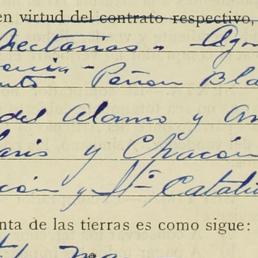 en virtud del contrato respectivo,
Nectarias - Ago
Peñon Bla
del Alamo y An
y Chacón
ción y Sta Catali
nta de las tierras es como sigue: